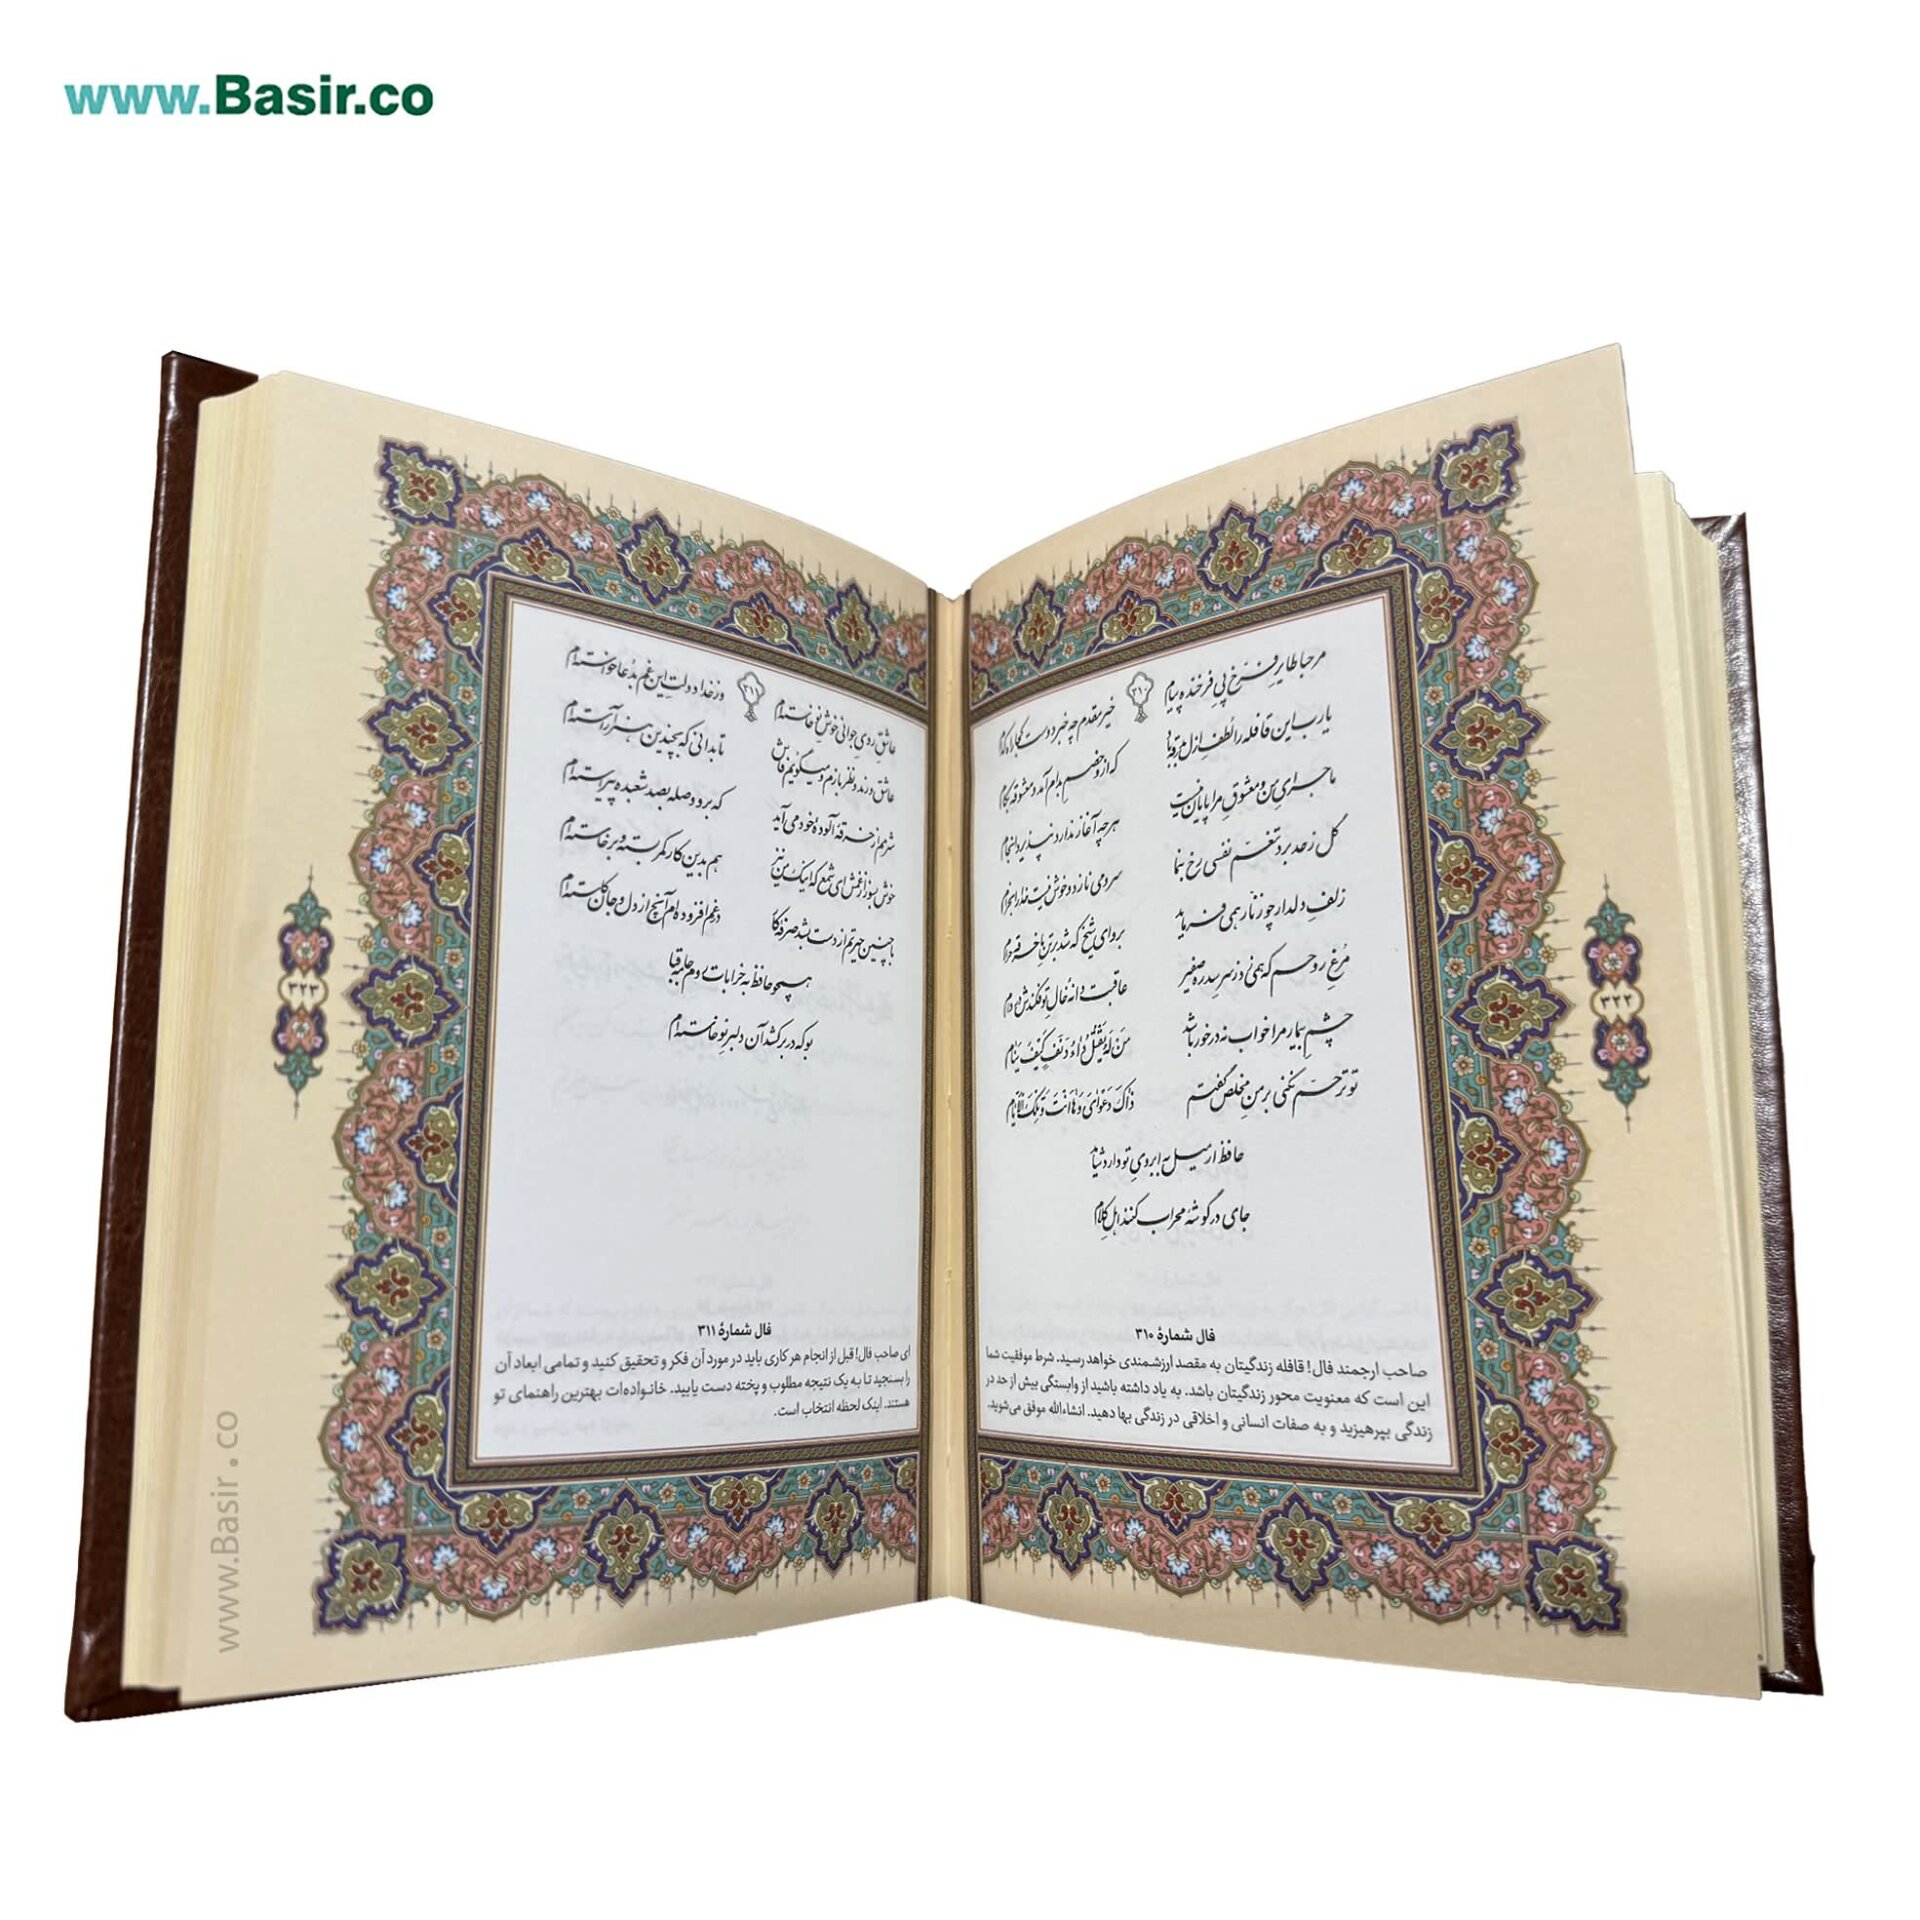 www.Basir.co
۳۱۰
مرحبا طایر فرّخ پی فرخنده پیام
خیر مقدم چه خبر دوست کجا راه کدام
یارب این قافله را لطف ازل بدرقه باد
که ازو خصم بدام آمد و معشوقه بکام
ماجرای من و معشوق مرا پایان نیست
هر چه آغاز ندارد نپذیرد انجام
گل ز حد برد تنعّم نفسی رخ بنما
سرو می نازد و خوش نیست خدا را بخرام
زلف دلدار چو زنّار همی فرماید
برو ای شیخ که شد بر تن ما خرقه حرام
مرغ روحم که همی زد ز سر سدره صفیر
عاقبت دانه خال تو فکندش در دام
چشم بیمار مرا خواب نه در خور باشد
مَن لَه یَقْتُلُ داءٌ دَنَفٌ کَیْفَ یَنام
تو ترحّم نکنی بر من مخلص گفتم
ذاکَ دَعْوایَ وَ ها اَنْتَ وَ تِلْکَ الاَیّام
حافظ ار میل به ابروی تو دارد شاید
جای در گوشهٔ محراب کنند اهل کلام
فال شمارهٔ ۳۱۰
صاحب ارجمند فال! قافله زندگیتان به مقصد ارزشمندی خواهد رسید. شرط موفقیت شما
این است که معنویت محور زندگیتان باشد. به یاد داشته باشید از وابستگی بیش از حد در
زندگی بپرهیزید و به صفات انسانی و اخلاقی در زندگی بها دهید. انشاءالله موفق می‌شوید.
۳۲۲
۳۱۱
عاشق روی جوانی خوش نوخاسته‌ام
وز خدا دولت این غم بدعا خواسته‌ام
عاشق و رند و نظربازم و میگویم فاش
تا بدانی که بچندین هنر آراسته‌ام
شرمم از خرقه آلودهٔ خود می آید
که برو وصله بصد شعبده پیراسته‌ام
خوش بسوز از غمش ای شمع که اینک من نیز
هم بدین کار کمر بسته و برخاسته‌ام
با چنین حیرتم از دست بشد صرفه کار
در غم افزوده‌ام آنچ از دل و جان کاسته‌ام
همچو حافظ به خرابات روم جامه قبا
بو که در بر کشد آن دلبر نوخاسته‌ام
فال شمارهٔ ۳۱۱
ای صاحب فال! قبل از انجام هر کاری باید در مورد آن فکر و تحقیق کنید و تمامی ابعاد آن
را بسنجید تا به یک نتیجه مطلوب و پخته دست یابید. خانواده‌ات بهترین راهنمای تو
هستند. اینک لحظه انتخاب است.
۳۲۳
www.Basir.co